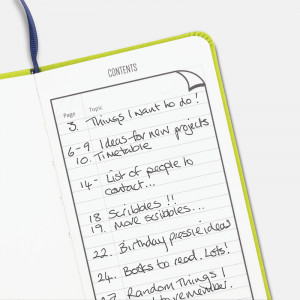 CONTENTS
Page Topic
3. Things I want to do!
6-9 Ideas for new projects
10. Timetable
14- List of people to
contact...
18 Scribbles !!
19. More scribbles....
22. Birthday pressie ideas
24.. Books to read. Lots!
27. Random Things I
to remember.